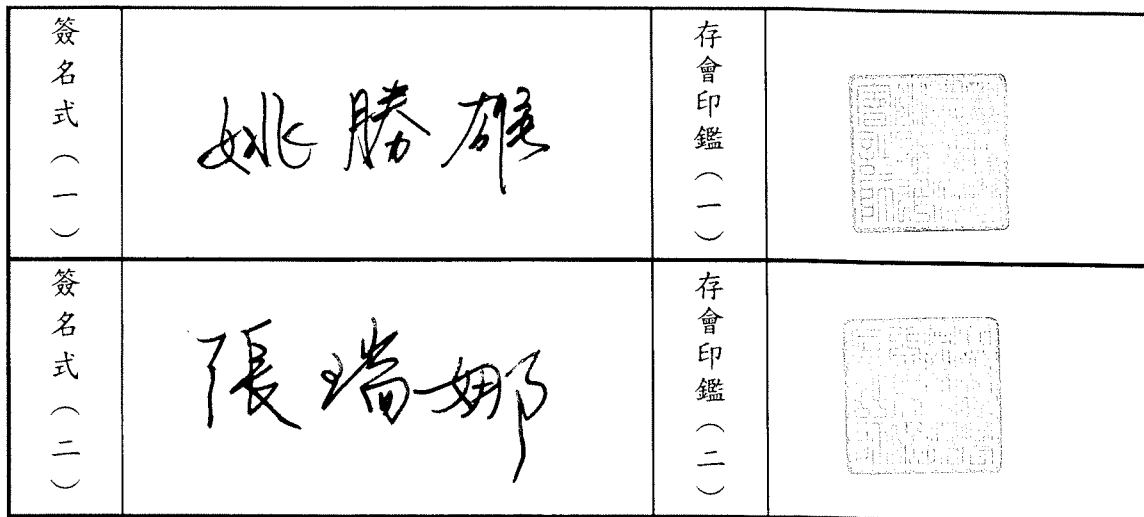 簽名式(一)
姚勝雄
存會印鑑(一)
簽名式(二)
張瑞娜
存會印鑑(二)